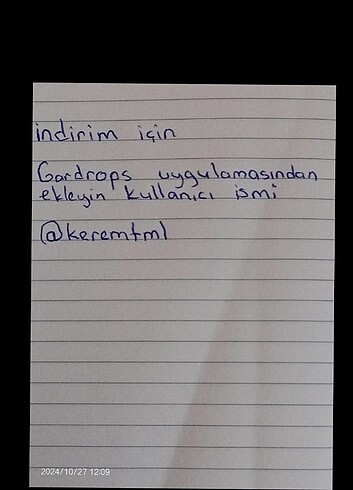 indirim için
Gardrops uygulamasından
ekleyin kullanıcı ismi
@keremtml
2024/10/27 12:09